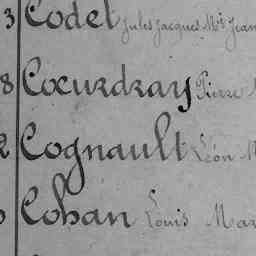 3 Codet Jules Jacques Mie Jean
8 Coeurdray Pierre
2 Cognault Léon M
Cohan Louis Mar